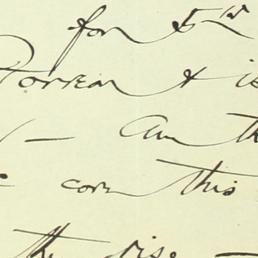 for 5
Torreon & is
— Am th
corn this
the rise —